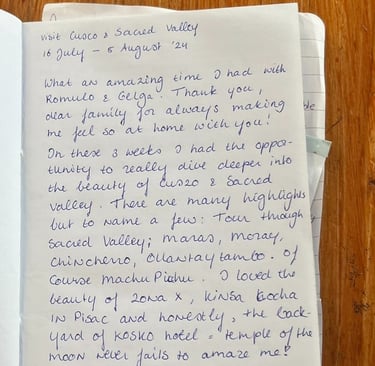 visit Cusco & Sacred Valley
16 July – 5 August '24
What an amazing time I had with
Romulo & Gelga. Thank you,
dear family for always making
me feel so at home with you!
In these 3 weeks I had the oppor-
tunity to really dive deeper into
the beauty of Cuszo & Sacred
Valley. There are many highlights
but to name a few: Tour through
Sacred Valley; Maras, Moray,
Chinchero, Ollantaytambo. Of
course Machu Pichu. I loved the
beauty of Zona X, Kinsa Cocha
in Pisac and honestly, the back-
yard of Kosko hotel = temple of the
moon never fails to amaze me!